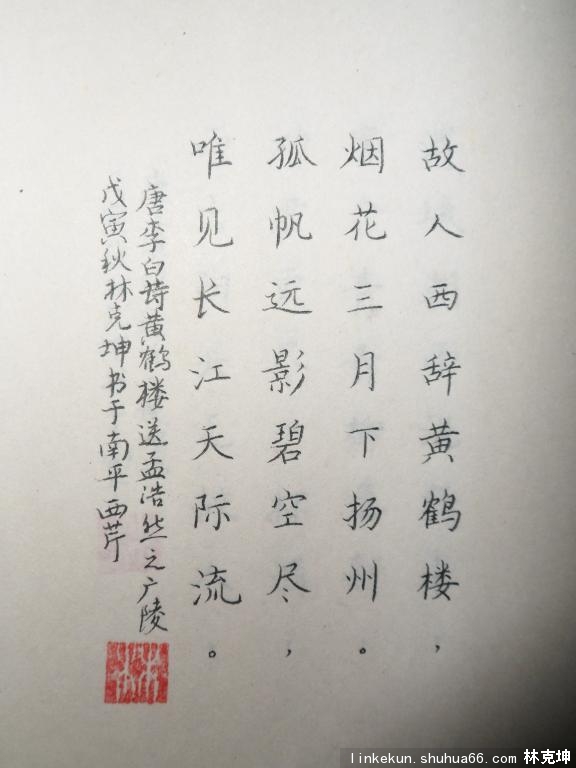 故人西辞黄鹤楼，
烟花三月下扬州。
孤帆远影碧空尽，
唯见长江天际流。
唐李白诗黄鹤楼送孟浩然之广陵
戊寅秋林克坤书于南平西芹
linkekun.shuhua66.com 林克坤